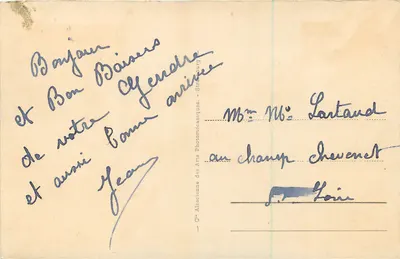 Bonjour
et Bon Baisers
de votre Gendre
et aussi bonne arrivée
Jean
— Cie Alsacienne des Arts Photomécaniques - Strasbourg
Mme Mr Lartaud
au champ Chevenet
Loire